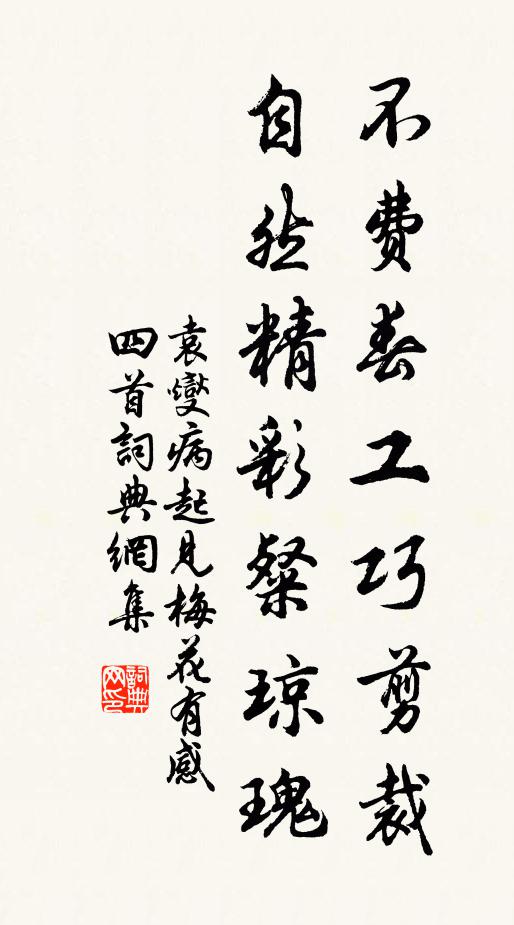 不費春工巧剪裁
自然精彩粲琼瑰
袁燮病起見梅花有感
四首詞典網集
詞典
网印